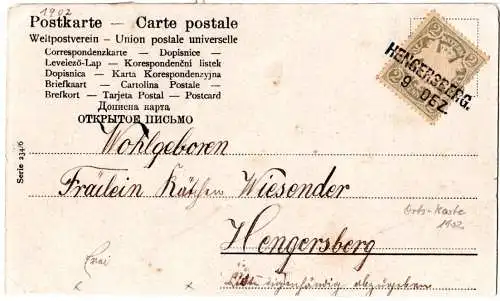 1902
Postkarte — Carte postale
Weltpostverein – Union postale universelle
Correspondenzkarte – Dopisnice –
Levelező-Lap – Korespondenční listek
Dopisnica – Karta Korespondenzyjna
Briefkaart – Cartolina Postale –
Brefkort – Tarjeta Postal – Postcard
Дописна карта
ОТКРЫТОЕ ПИСЬМО
2 2
HENGERSBERG.
9 DEZ.
2 2
Serie 234/6
Wohlgeboren
Fräulein Käthen Wiesender
Orts-Karte
1902
Hengersberg
frei
eigenhändig abzugeben